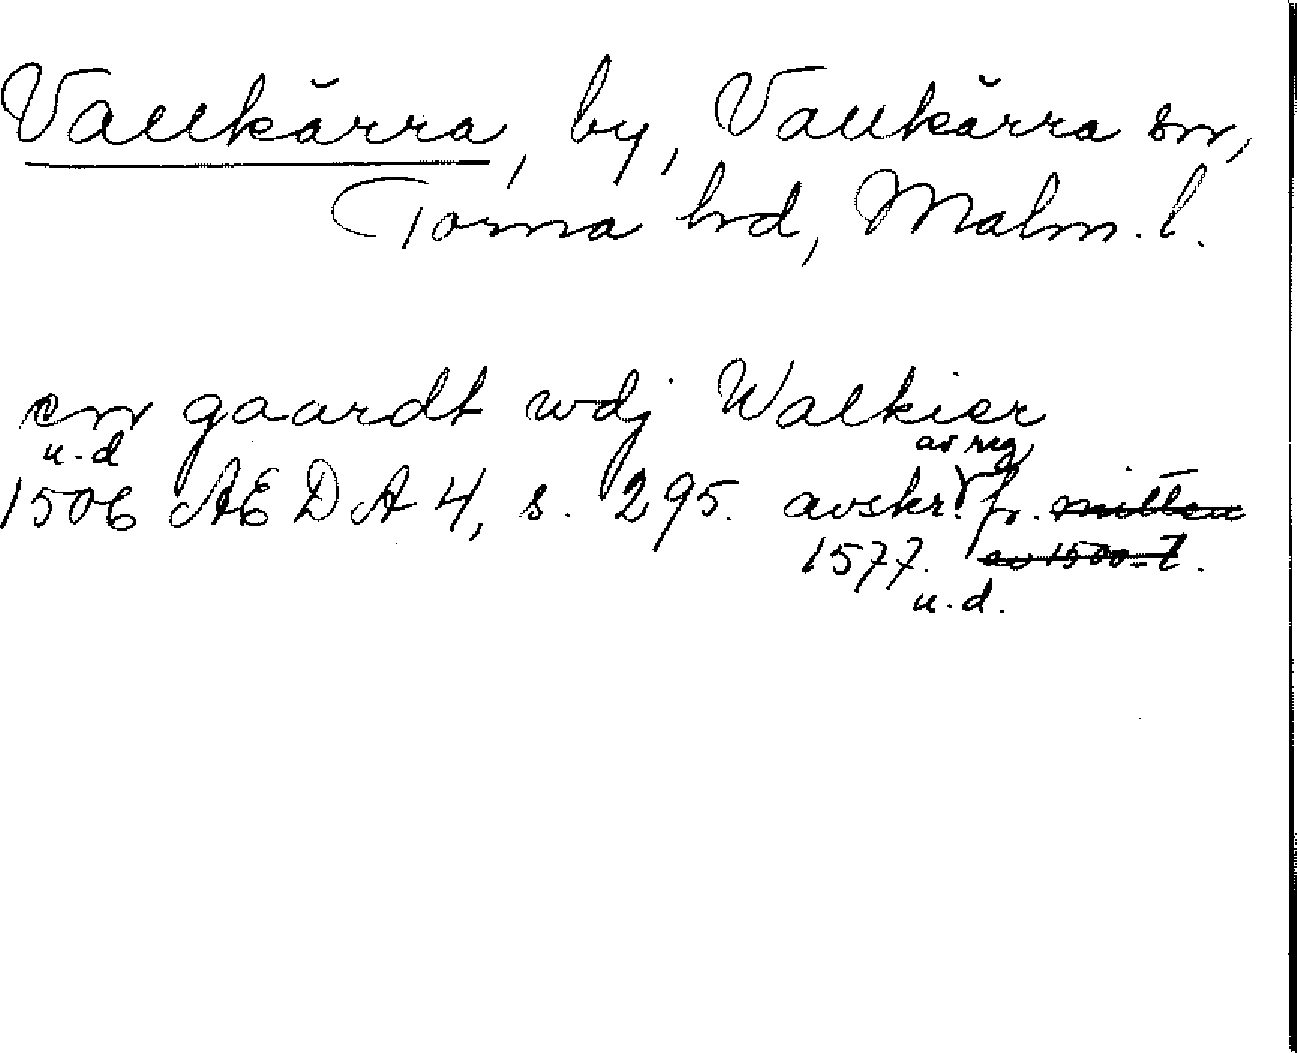 Vallkärra, by, Vallkärra sn,
Torna hd, Malm. l.
en gaardt wdj Walkier
u.d av reg
1506 ÆDA 4, s. 295. avskr. fr. mitten
1577. av 1500-t.
u.d.